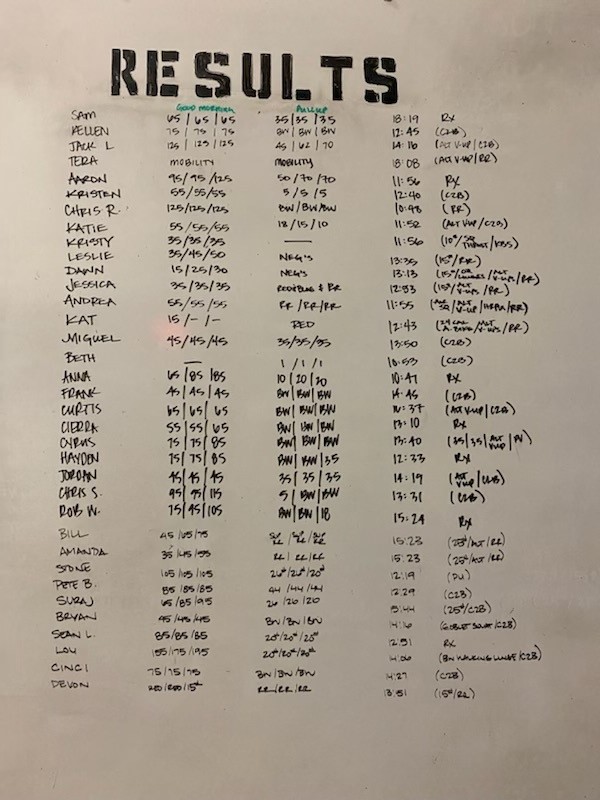 RESULTS
GOOD MORNING PULLUP
SAM 65/65/65 35/35/35 18:19 RX
KELLEN 75/75/75 BW/BW/BW 12:45 (C2B)
JACK L 125/125/125 45/62/70 14:16 (ALT V-UP/C2B)
TERA MOBILITY MOBILITY 18:08 (ALT V-UP/RR)
AARON 95/95/125 50/70/70 11:56 RX
KRISTEN 55/55/55 5/5/5 12:40 (C2B)
CHRIS R. 125/125/125 BW/BW/BW 10:48 (RR)
KATIE 55/55/55 18/15/10 11:52 (ALT VUP/C2B)
KRISTY 35/35/35 — 11:56 (10#/SQ THRUST/KBS)
LESLIE 35/45/50 NEG'S 13:35 (15#/RR)
DAWN 15/25/30 NEG'S 13:13 (15#/ALT V-UPS/RR)
JESSICA 35/35/35 RED+BLUE & RR 12:53 (15#/ALT V-UPS/RR)
ANDREA 55/55/55 RR/RR/RR 11:55 (SQ/ALT V-UP/HRPU/RR)
KAT 15/-/- RED 12:43 (24 CAL A.BIKE/ALT V-UPS/RR)
MIGUEL 45/45/45 35/35/35 13:50 (C2B)
BETH — 1/1/1 10:53 (C2B)
ANNA 65/85/85 10/20/20 10:47 RX
FRANK 45/45/45 BW/BW/BW 14:45 (C2B)
CURTIS 65/65/65 BW/BW/BW 16:37 (ALT VUP/C2B)
CIERRA 55/55/65 BW/BW/BW 13:10 RX
CYRUS 75/75/85 BW/BW/BW 13:40 (35/35/ALT VUP/PU)
HAYDEN 75/75/85 BW/BW/35 12:33 RX
JORDAN 45/45/45 35/35/35 14:19 (ALT VUP/C2B)
CHRIS S. 95/95/115 5/BW/BW 13:31 (C2B)
ROB W. 75/95/105 BW/BW/18 15:24 RX
BILL 45/65/75 15:23 (25#/ALT/RR)
AMANDA 35/45/55 RR/RR/RR 15:23 (25#/ALT/RR)
STONE 105/105/105 26#/26#/20# 12:19 (PU)
PETE B. 85/85/85 44/44/44 12:29 (C2B)
SURAJ 65/85/95 26/26/20 15:44 (25#/C2B)
BRYAN 45/45/45 BW/BW/BW 14:16 (GOBLET SQUAT/C2B)
SEAN L. 85/85/85 20#/20#/20# 12:51 RX
LOU 155/175/195 20#/20#/20# 14:06 (BW WALKING LUNGE/C2B)
CINCI 75/75/75 BW/BW/BW 14:27 (C2B)
DEVON RED/RED/15# RR/RR/RR 13:51 (15#/RR)